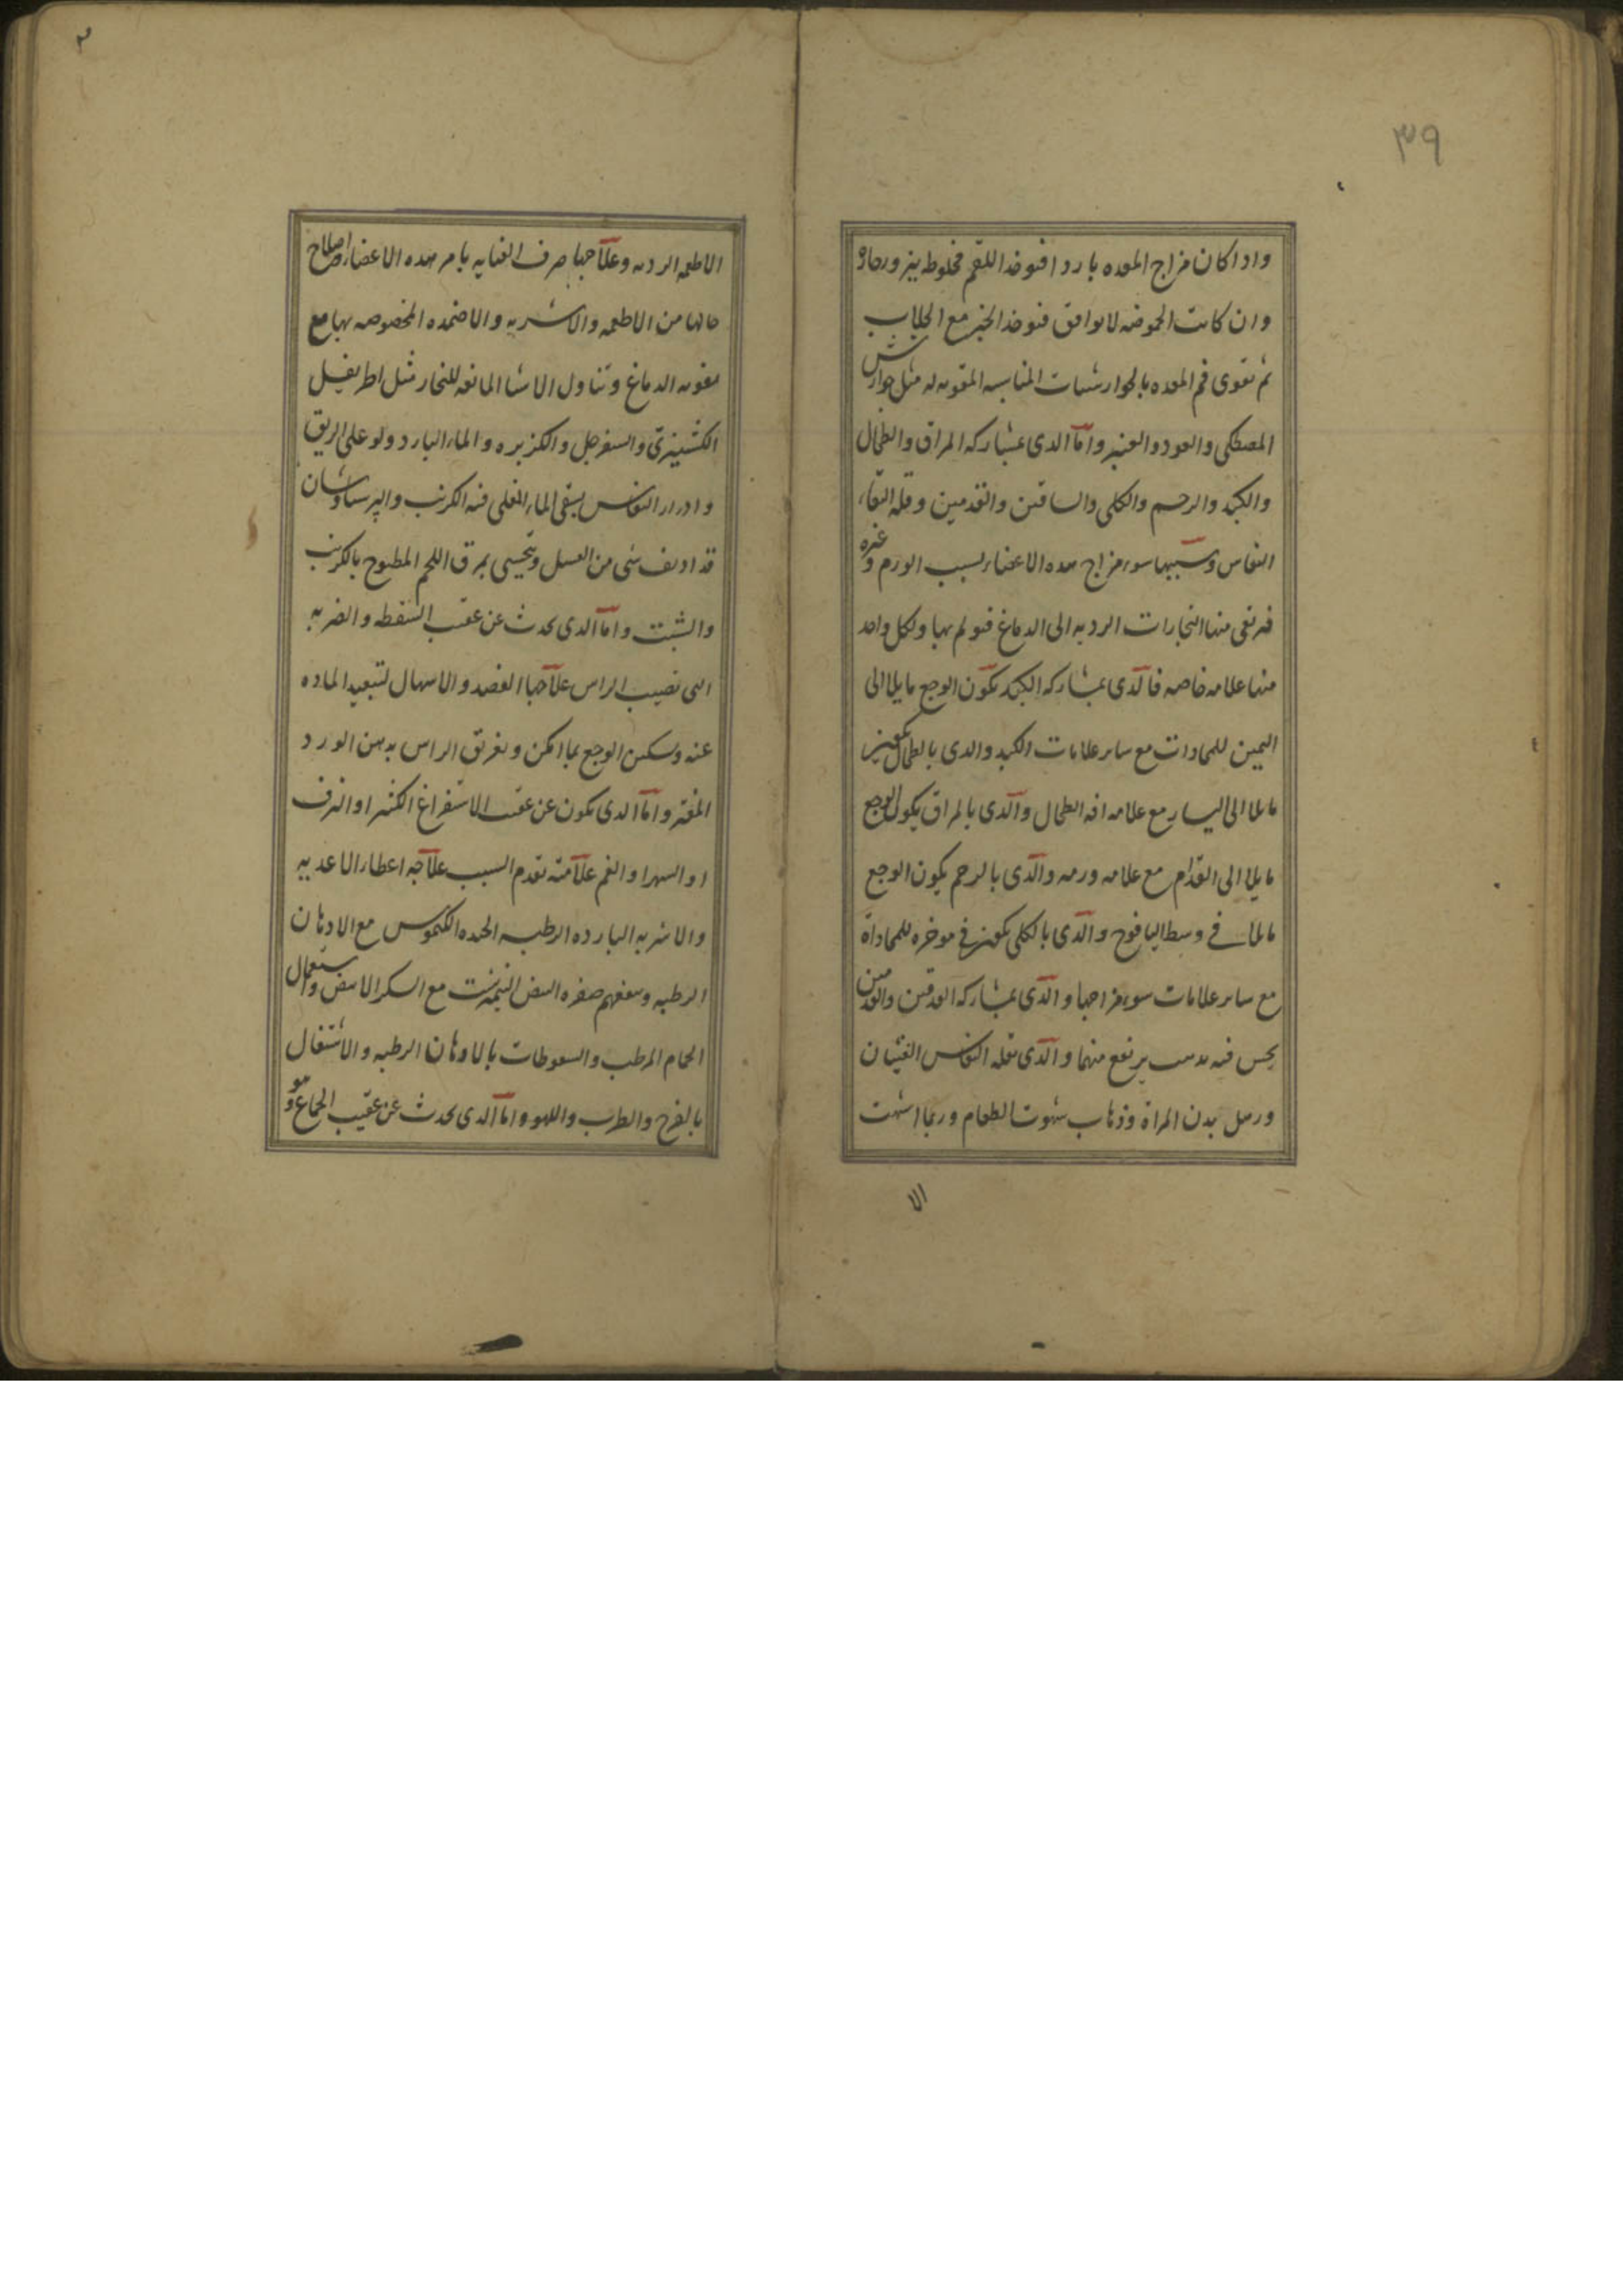 ٣٩
واذا كان مزاج المعده باردا فيوخذ اللقم مخلوطه ببزور حاره
وان كانت الحموضه لا توافق فيوخذ الخبز مع الجلاب
ثم تقوى فم المعده بالجوارشنات المناسبه المقويه له مثل جوارش
المصطكى والعود والعنبر واما الذى بمشاركه المراق والطحال
والكبد والرحم والكلى والساقين والقدمين وقله النقاء
النفاس وسببها سوء مزاج هذه الاعضاء بسبب الورم وغيره
فيرتقى منها البخارات الرديه الى الدماغ فيولم بها ولكل واحد
منها علامه خاصه فالذى بمشاركه الكبد يكون الوجع مايلا الى
اليمين للمحاذات مع ساير علامات الكبد والذى بالطحال يكون
مايلا الى اليسار مع علامه افه الطحال والذى بالمراق يكون الوجع
مايلا الى القدام مع علامه ورمه والذى بالرحم يكون الوجع
مايلا فى وسط اليافوخ والذى بالكلى يكون فى موخره للمحاذاة
مع ساير علامات سوء مزاجها والذى بمشاركه الساقين والقدمين
يحس فيه بدبيب يرتفع منهما والذى بقله النفاس الغثيان
ورهل بدن المراة وذهاب شهوت الطعام وربما اشتهت
الا
الاطعمه الرديه وعلاجها صرف العنايه بامر هذه الاعضاء واصلاح
حالها من الاطعمه والاشربه والاضمده المخصوصه بها مع
تقويه الدماغ وتناول الاشيا المانعه للبخار مثل اطريفل
الكشنيزى والسفرجل والكزبره والماء البارد ولو على الريق
وادرار النفاس بسقى الماء المغلى فيه الكرنب والپرسياوشان
قد اديف شى من العسل ويتحسى بمرق اللحم المطبوخ بالكرنب
والشبت واما الذى يحدث عن عقب السقطه والضربه
التى تصيب الراس علاجها الفصد والاسهال لتبعيد الماده
عنه وسكين الوجع بما امكن وتغريق الراس بدهن الورد
المفتر واما الذى يكون عن عقب الاستفراغ الكثير او النزف
او السهر او الغم علامته تقدم السبب علاجه اعطاء الاغديه
والاشربه البارده الرطبه الجيده الكيموس مع الادهان
الرطبه وينفعهم صفره البيض النيمبرشت مع السكر الابيض واستعمال
الحمام المرطب والسعوطات بالادهان الرطبه والاشتغال
بالفرح والطرب واللهو واما الذى يحدث عن عقيب الجماع وهو